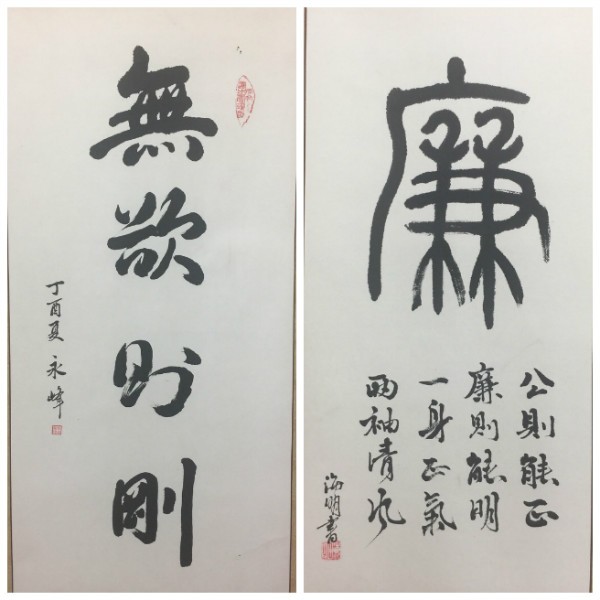 無欲则剛
丁酉夏 永峰
廉
公則能正
廉則能明
一身正氣
兩袖清风
海明書